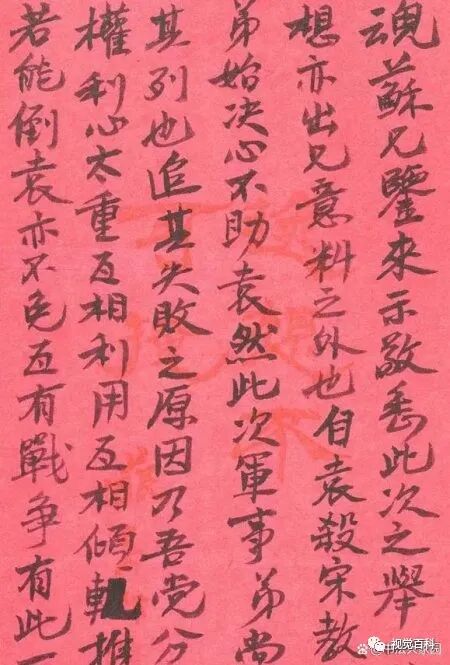 魂蘇兄鑒来示敬悉此次之舉
想亦出兄意料之外也自袁殺宋教
弟始决心不助袁然此次軍事弟尚
其列也追其失敗之原因乃吾党分
權利心太重互相利用互相傾軋推
若能倒袁亦不免互有戰争有此一
视觉百科